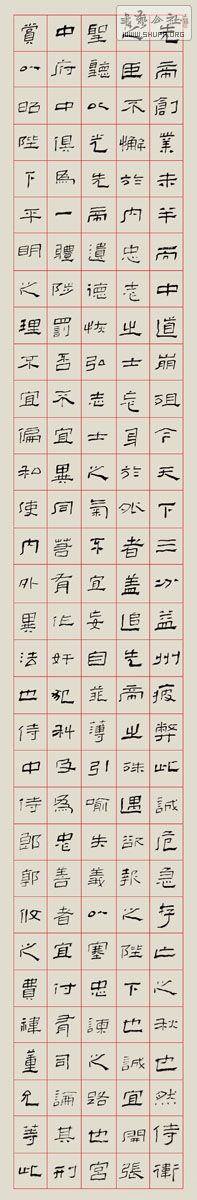 書藝公社
WWW.SHUFA.ORG
先帝創業未半而中道崩殂今天下三分益州疲弊此誠危急存亡之秋也然侍衛
之臣不懈於內忠志之士忘身於外者蓋追先帝之殊遇欲報之陛下也誠宜開張
聖聽以光先帝遺德恢弘志士之氣不宜妄自菲薄引喻失義以塞忠諫之路也宮
中府中俱為一體陟罰否不宜異同若有作奸犯科及為忠善者宜付有司論其刑
賞以昭陛下平明之理不宜偏私使內外異法也侍中侍郎郭攸之費禕董允等此